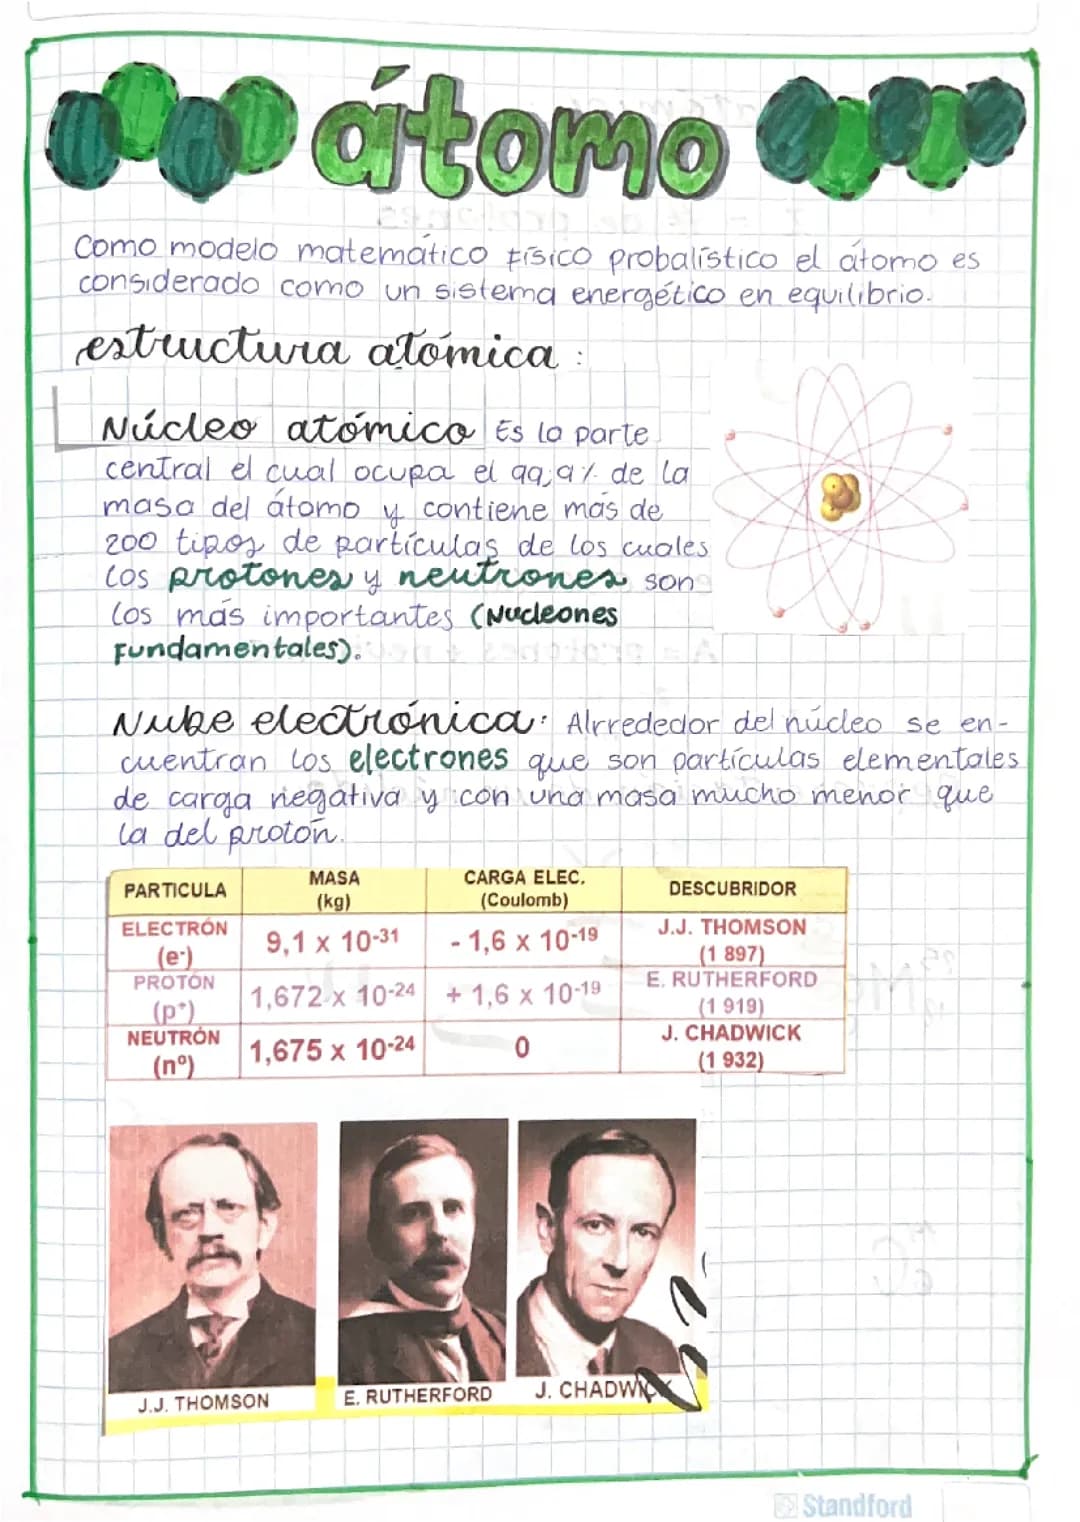 átomo
Como modelo matemático físico probalístico el átomo es
considerado como un sistema energético en equilibrio.
estructura atómica :
Núcleo atómico Es la parte
central el cual ocupa el 99,9% de la
masa del átomo y contiene mas de
200 tipos de partículas de los cuales
los protones y neutrones son
los más importantes (Nucleones
Fundamentales).
Nube electrónica: Alrrededor del núcleo se en-
cuentran los electrones que son partículas elementales
de carga negativa y con una masa mucho menor que
la del protón.
PARTICULA MASA (kg) CARGA ELEC. (Coulomb) DESCUBRIDOR
ELECTRÓN (e-) 9,1 x 10-31 - 1,6 x 10-19 J.J. THOMSON (1 897)
PROTÓN (p+) 1,672 x 10-24 + 1,6 x 10-19 E. RUTHERFORD (1 919)
NEUTRÓN (nº) 1,675 x 10-24 0 J. CHADWICK (1 932)
J.J. THOMSON E. RUTHERFORD J. CHADWICK
Standford